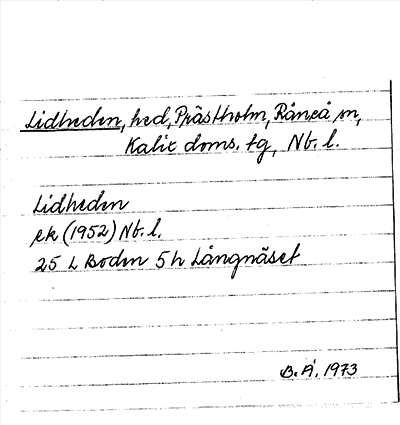 Lidheden, hed, Prästholm, Råneå sn,
Kalix doms. tg, Nb. l.
Lidheden
ek (1952) Nb. l.
25 L Boden 5h Långnäset
B. Å. 1973